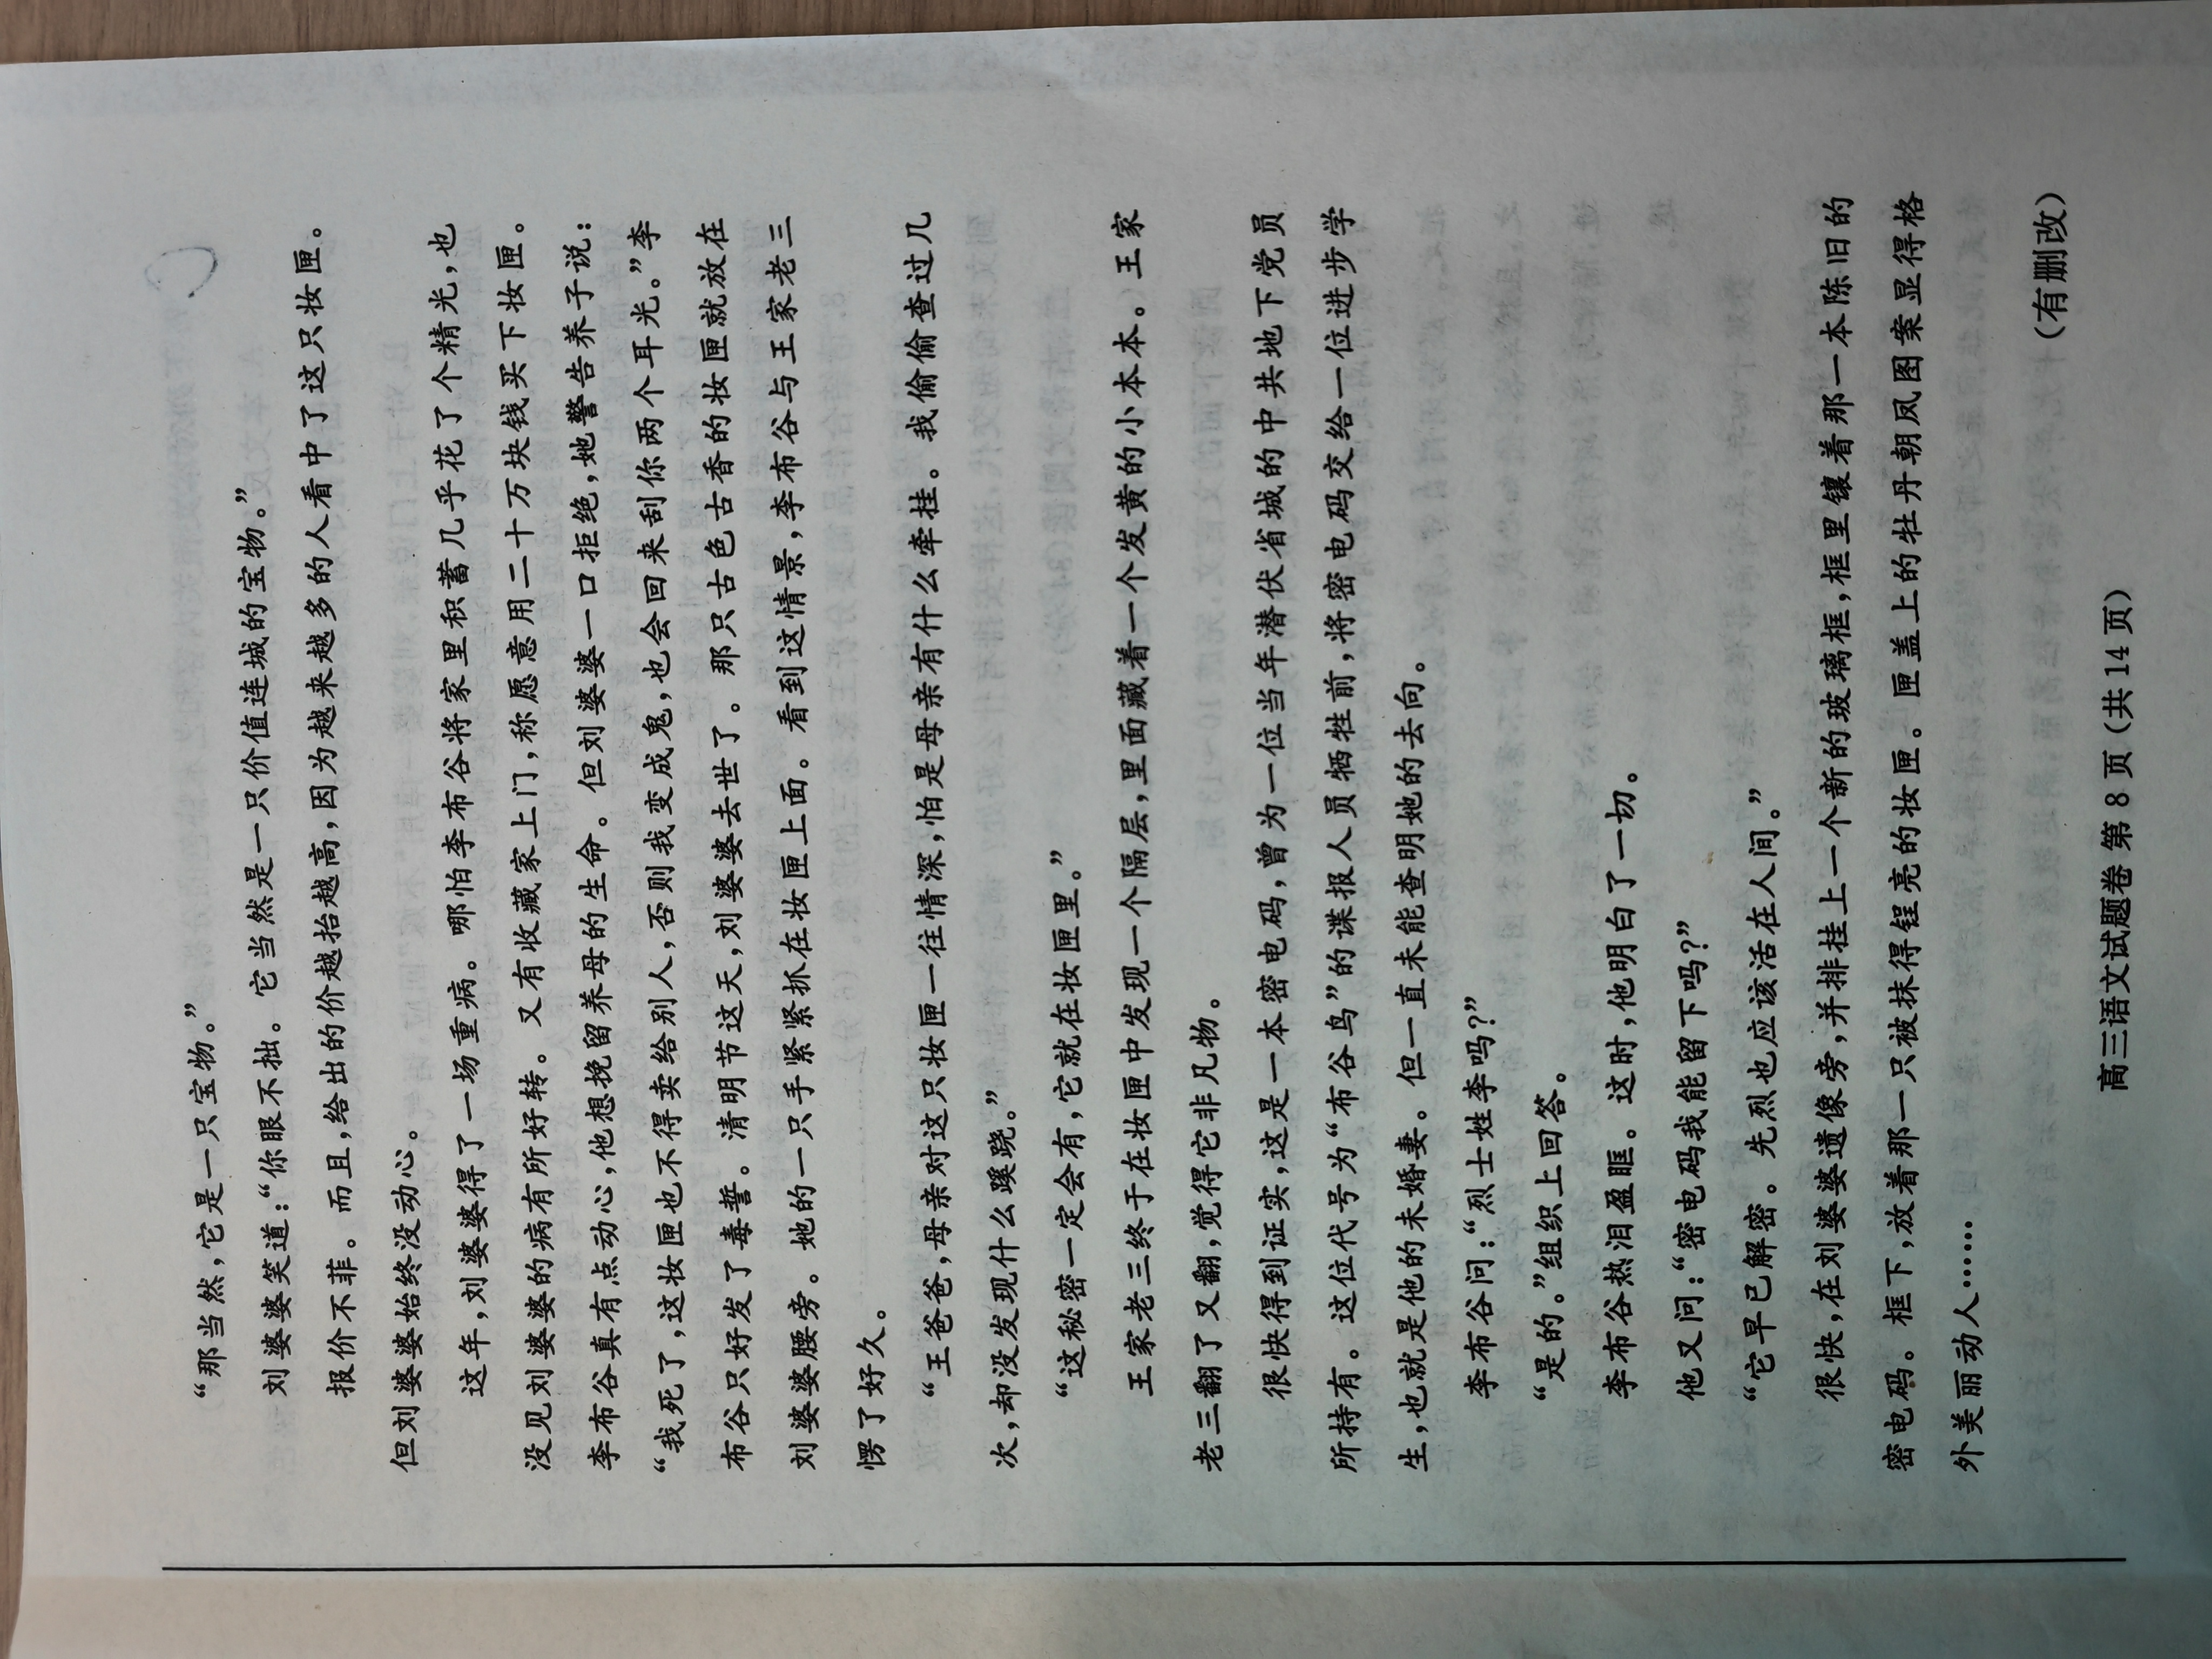 “那当然，它是一只宝物。”
刘婆婆笑道：“你眼不拙。它当然是一只价值连城的宝物。”
报价不菲。而且，给出的价越抬越高，因为越来越多的人看中了这只妆匣。
但刘婆婆始终没动心。
这年，刘婆婆得了一场重病。哪怕李布谷将家里积蓄几乎花了个精光，也
没见刘婆婆的病有所好转。又有收藏家上门，称愿意用二十万块钱买下妆匣。
李布谷真有点动心，他想挽留养母的生命。但刘婆婆一口拒绝，她警告养子说：
“我死了，这妆匣也不得卖给别人，否则我变成鬼，也会回来刮你两个耳光。”李
布谷只好发了毒誓。清明节这天，刘婆婆去世了。那只古色古香的妆匣就放在
刘婆婆腰旁。她的一只手紧紧抓在妆匣上面。看到这情景，李布谷与王家老三
愣了好久。
“王爸爸，母亲对这只妆匣一往情深，怕是母亲有什么牵挂。我偷偷查过几
次，却没发现什么蹊跷。”
“这秘密一定会有，它就在妆匣里。”
王家老三终于在妆匣中发现一个隔层，里面藏着一个发黄的小本本。王家
老三翻了又翻，觉得它非凡物。
很快得到证实，这是一本密电码，曾为一位当年潜伏省城的中共地下党员
所持有。这位代号为“布谷鸟”的谍报人员牺牲前，将密电码交给一位进步学
生，也就是他的未婚妻。但一直未能查明她的去向。
李布谷问：“烈士姓李吗？”
“是的。”组织上回答。
李布谷热泪盈眶。这时，他明白了一切。
他又问：“密电码我能留下吗？”
“它早已解密。先烈也应该活在人间。”
很快，在刘婆婆遗像旁，并排挂上一个新的玻璃框，框里镶着那一本陈旧的
密电码。框下，放着那一只被抹得锃亮的妆匣。匣盖上的牡丹朝凤图案显得格
外美丽动人……
（有删改）
高三语文试题卷 第 8 页（共 14 页）